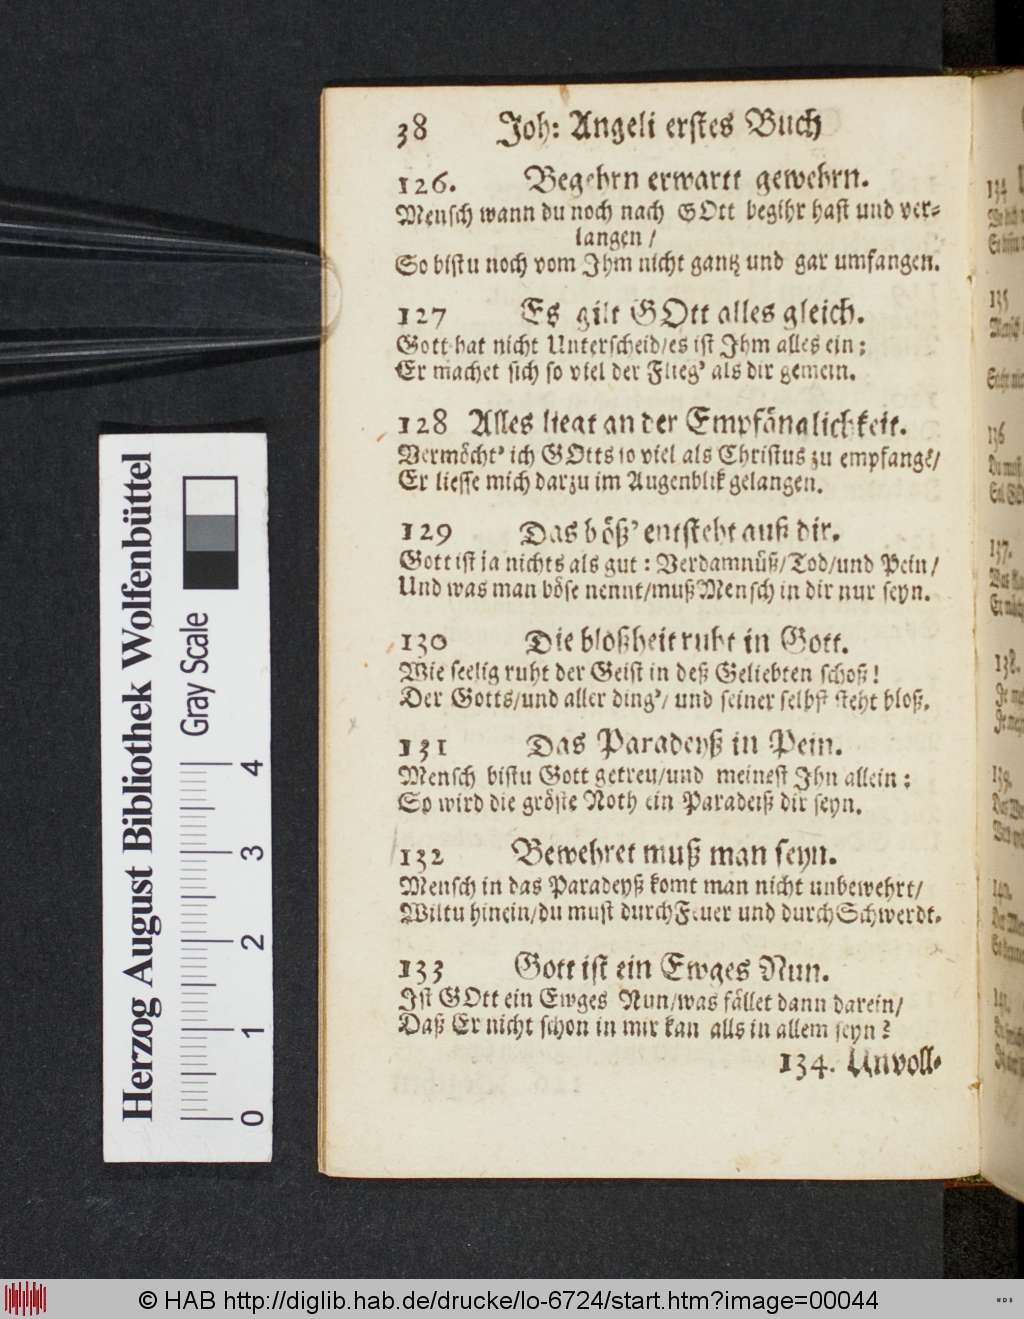 38 Joh: Angeli erstes Buch
126. Begehrn erwartt gewehrn.
Mensch wann du noch nach GOtt begihr hast und ver-
langen /
So bistu noch vom Jhm nicht gantz und gar umfangen.
127 Es gilt GOtt alles gleich.
Gott hat nicht Unterscheid/es ist Jhm alles ein;
Er machet sich so viel der Flieg' als dir gemein.
128 Alles liegt an der Empfänglichkeit.
Vermöcht' ich GOtts so viel als Christus zu empfangē/
Er liesse mich darzu im Augenblik gelangen.
129 Das böß' entsteht auß dir.
Gott ist ja nichts als gut: Verdamnüß/Tod/und Pein/
Und was man böse nennt/muß Mensch in dir nur seyn.
130 Die bloßheit ruht in Gott.
Wie seelig ruht der Geist in deß Geliebten schoß!
Der Gotts/und aller ding'/ und seiner selbst steht bloß.
131 Das Paradeyß in Pein.
Mensch bistu Gott getreu/und meinest Jhn allein;
So wird die gröste Noth ein Paradeiß dir seyn.
132 Bewehret muß man seyn.
Mensch in das Paradeyß komt man nicht unbewehrt/
Wiltu hinein/du must durch Feuer und durch Schwerdt.
133 Gott ist ein Ewges Nun.
Jst GOtt ein Ewges Nun/was fället dann darein/
Daß Er nicht schon in mir kan alls in allem seyn?
134. Unvoll-
Herzog August Bibliothek Wolfenbüttel
Gray Scale
0 1 2 3 4
© HAB http://diglib.hab.de/drucke/lo-6724/start.htm?image=00044